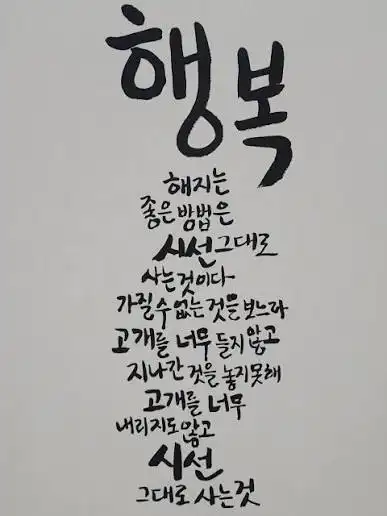 행복
해지는
좋은 방법은
시선 그대로
사는 것이다
가질 수 없는 것을 보느라
고개를 너무 들지 않고
지나간 것을 놓지 못해
고개를 너무
내리지도 않고
시선
그대로 사는 것